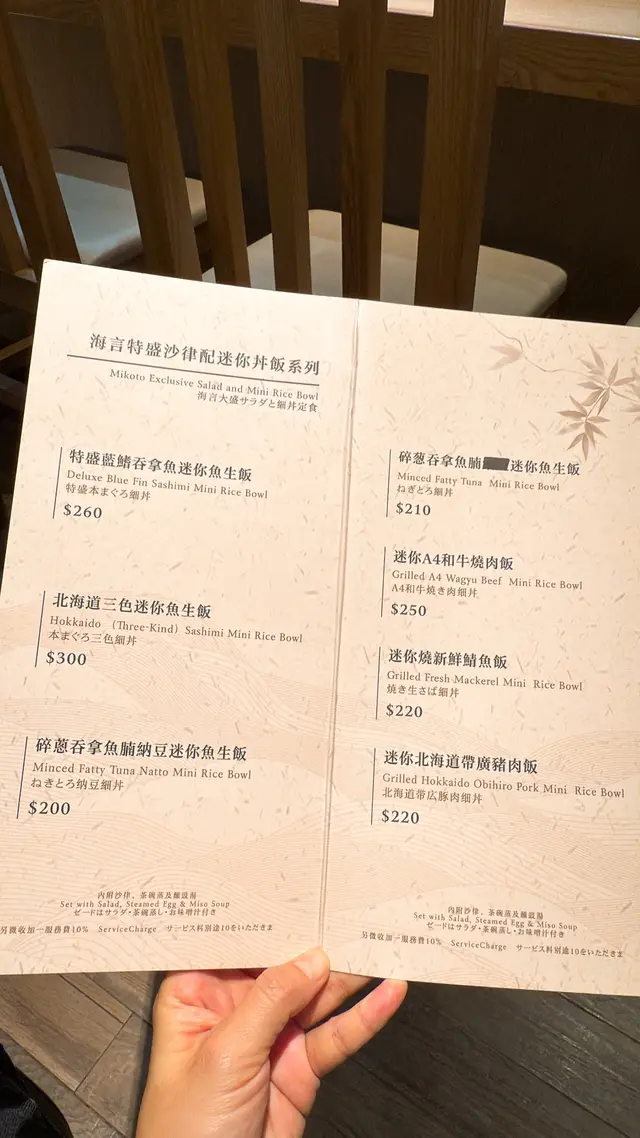 海言特盛沙律配迷你丼飯系列
Mikoto Exclusive Salad and Mini Rice Bowl
海言大盛サラダと細丼定食
特盛藍鰭吞拿魚迷你魚生飯
Deluxe Blue Fin Sashimi Mini Rice Bowl
特盛本まぐろ細丼
$260
北海道三色迷你魚生飯
Hokkaido （Three-Kind）Sashimi Mini Rice Bowl
本まぐろ三色細丼
$300
碎蔥吞拿魚腩納豆迷你魚生飯
Minced Fatty Tuna Natto Mini Rice Bowl
ねぎとろ納豆細丼
$200
內附沙律、茶碗蒸及麵豉湯
Set with Salad, Steamed Egg & Miso Soup
ゼードはサラダ・茶碗蒸し・お味噌汁付き
另徵收加一服務費10% ServiceCharge サービス料別途10をいただきま
碎葱吞拿魚腩 迷你魚生飯
Minced Fatty Tuna Mini Rice Bowl
ねぎとろ細丼
$210
迷你A4和牛燒肉飯
Grilled A4 Wagyu Beef Mini Rice Bowl
A4和牛燒き肉細丼
$250
迷你燒新鮮鯖魚飯
Grilled Fresh Mackerel Mini Rice Bowl
焼き生さば細丼
$220
迷你北海道帶廣豬肉飯
Grilled Hokkaido Obihiro Pork Mini Rice Bowl
北海道帯広豚肉細丼
$220
內附沙律、茶碗蒸及麵豉湯
Set with Salad, Steamed Egg & Miso Soup
ゼードはサラダ・茶碗蒸し・お味噌汁付き
另徵收加一服務費10% ServiceCharge サービス料別途10をいただきま